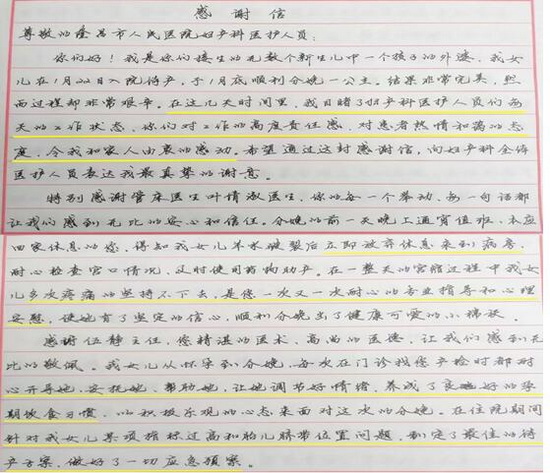 感谢信
尊敬的隆昌市人民医院妇产科医护人员：
你们好！我是你们接生的无数个新生儿中一个孩子的外婆，我女
儿在1月22日入院待产，于1月底顺利分娩一公主，结果非常完美，然
而过程却非常艰辛。在这几天时间里，我目睹了妇产科医护人员们每
天的工作状态，你们对工作的高度责任感，对患者热情和蔼的态
度，令我和家人由衷的感动，希望通过这封感谢信，向妇产科全体
医护人员表达我最真挚的谢意。
特别感谢管床医生叶情医生，你的每一个举动，每一句话都
让我们感到无比的安心和信任。分娩的前一天晚上通宵值班，本应
回家休息的您，得知我女儿羊水破裂后立即放弃休息来到病房，
耐心检查宫口情况，及时使用药物助产。在一整天的宫缩过程中我女
儿多次疼痛的坚持不下去，是您一次又一次耐心的专业指导和心理
安慰，使她有了坚定的信心，顺利分娩出了健康可爱的小棉袄。
感谢伍静主任，您精湛的医术，高尚的医德，让我们感到无
比的敬佩。我女儿从怀孕到分娩，每次在门诊找您产检时都耐
心开导她，安抚她，帮助她，让她调节好情绪，养成了良好的孕
期饮食习惯，以积极乐观的心态来面对这次的分娩。在住院期间
针对我女儿某项指标过高和胎儿脐带位置问题，制定了最佳的待
产方案，做好了一切应急预案。